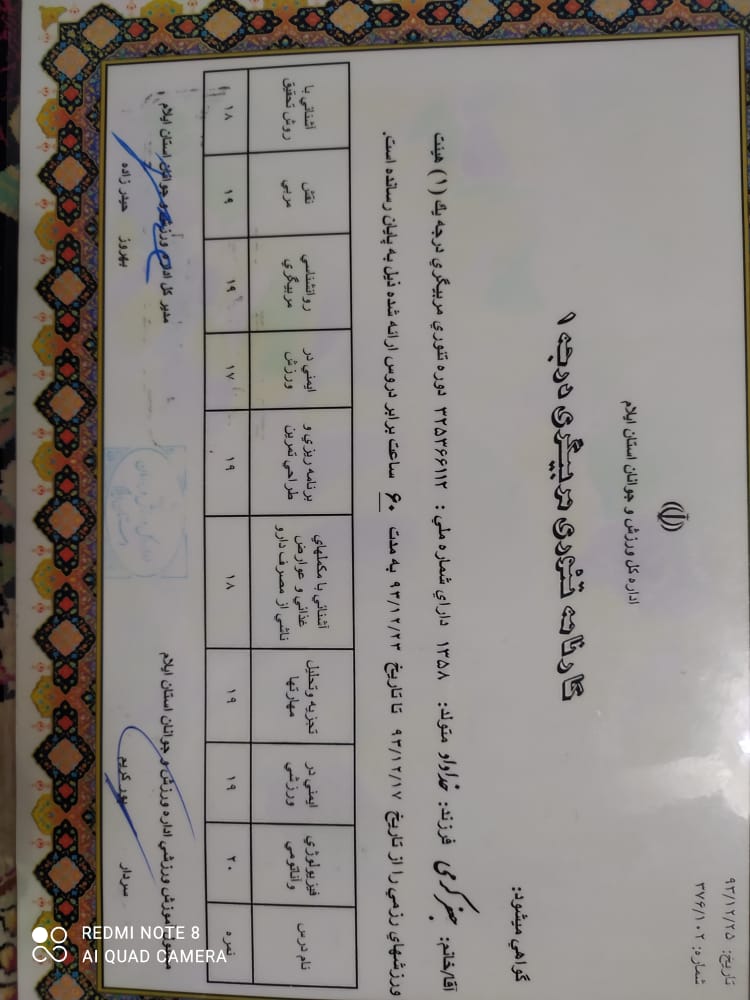 تاریخ: ۹۳/۱۲/۲۵
شماره: ۳۷۶/۱۰۲
اداره کل ورزش و جوانان استان ایلام
کارنامه تئوری مربیگری درجه ۱
گواهی میشود:
آقا/خانم: کرمی فرزند: خداداد متولد: ۱۳۵۸ دارای شماره ملی: ۳۲۵۳۶۶۱۱۲ دوره تئوری مربیگری درجه یك (۱) هیئت
ورزشهای رزمی را از تاریخ ۹۳/۱۲/۱۷ تا تاریخ ۹۳/۱۲/۲۳ به مدت ۶۰ ساعت برابر دروس ارائه شده ذیل به پایان رسانده است.
نام درس
فیزیولوژي وآناتومي
ایمني در ورزشي
تجزیه وتحلیل مهارتها
آشنائي با مکملهاي غذائي و عوارض ناشي از مصرف دارو
برنامه ریزي و طراحي تمرین
ایمني در ورزش
روانشناسي مربیگري
نقش مربي
آشنائي با روش تحقیق
نمره
۲۰
۱۹
۱۹
۱۸
۱۹
۱۷
۱۹
۱۹
۱۸
آموزش ورزشی اداره ورزش و جوانان استان ایلام
سردار پور کریم
مدیر کل اداره ورزش و جوانان استان ایلام
بهروز حیدر زاده
REDMI NOTE 8
AI QUAD CAMERA